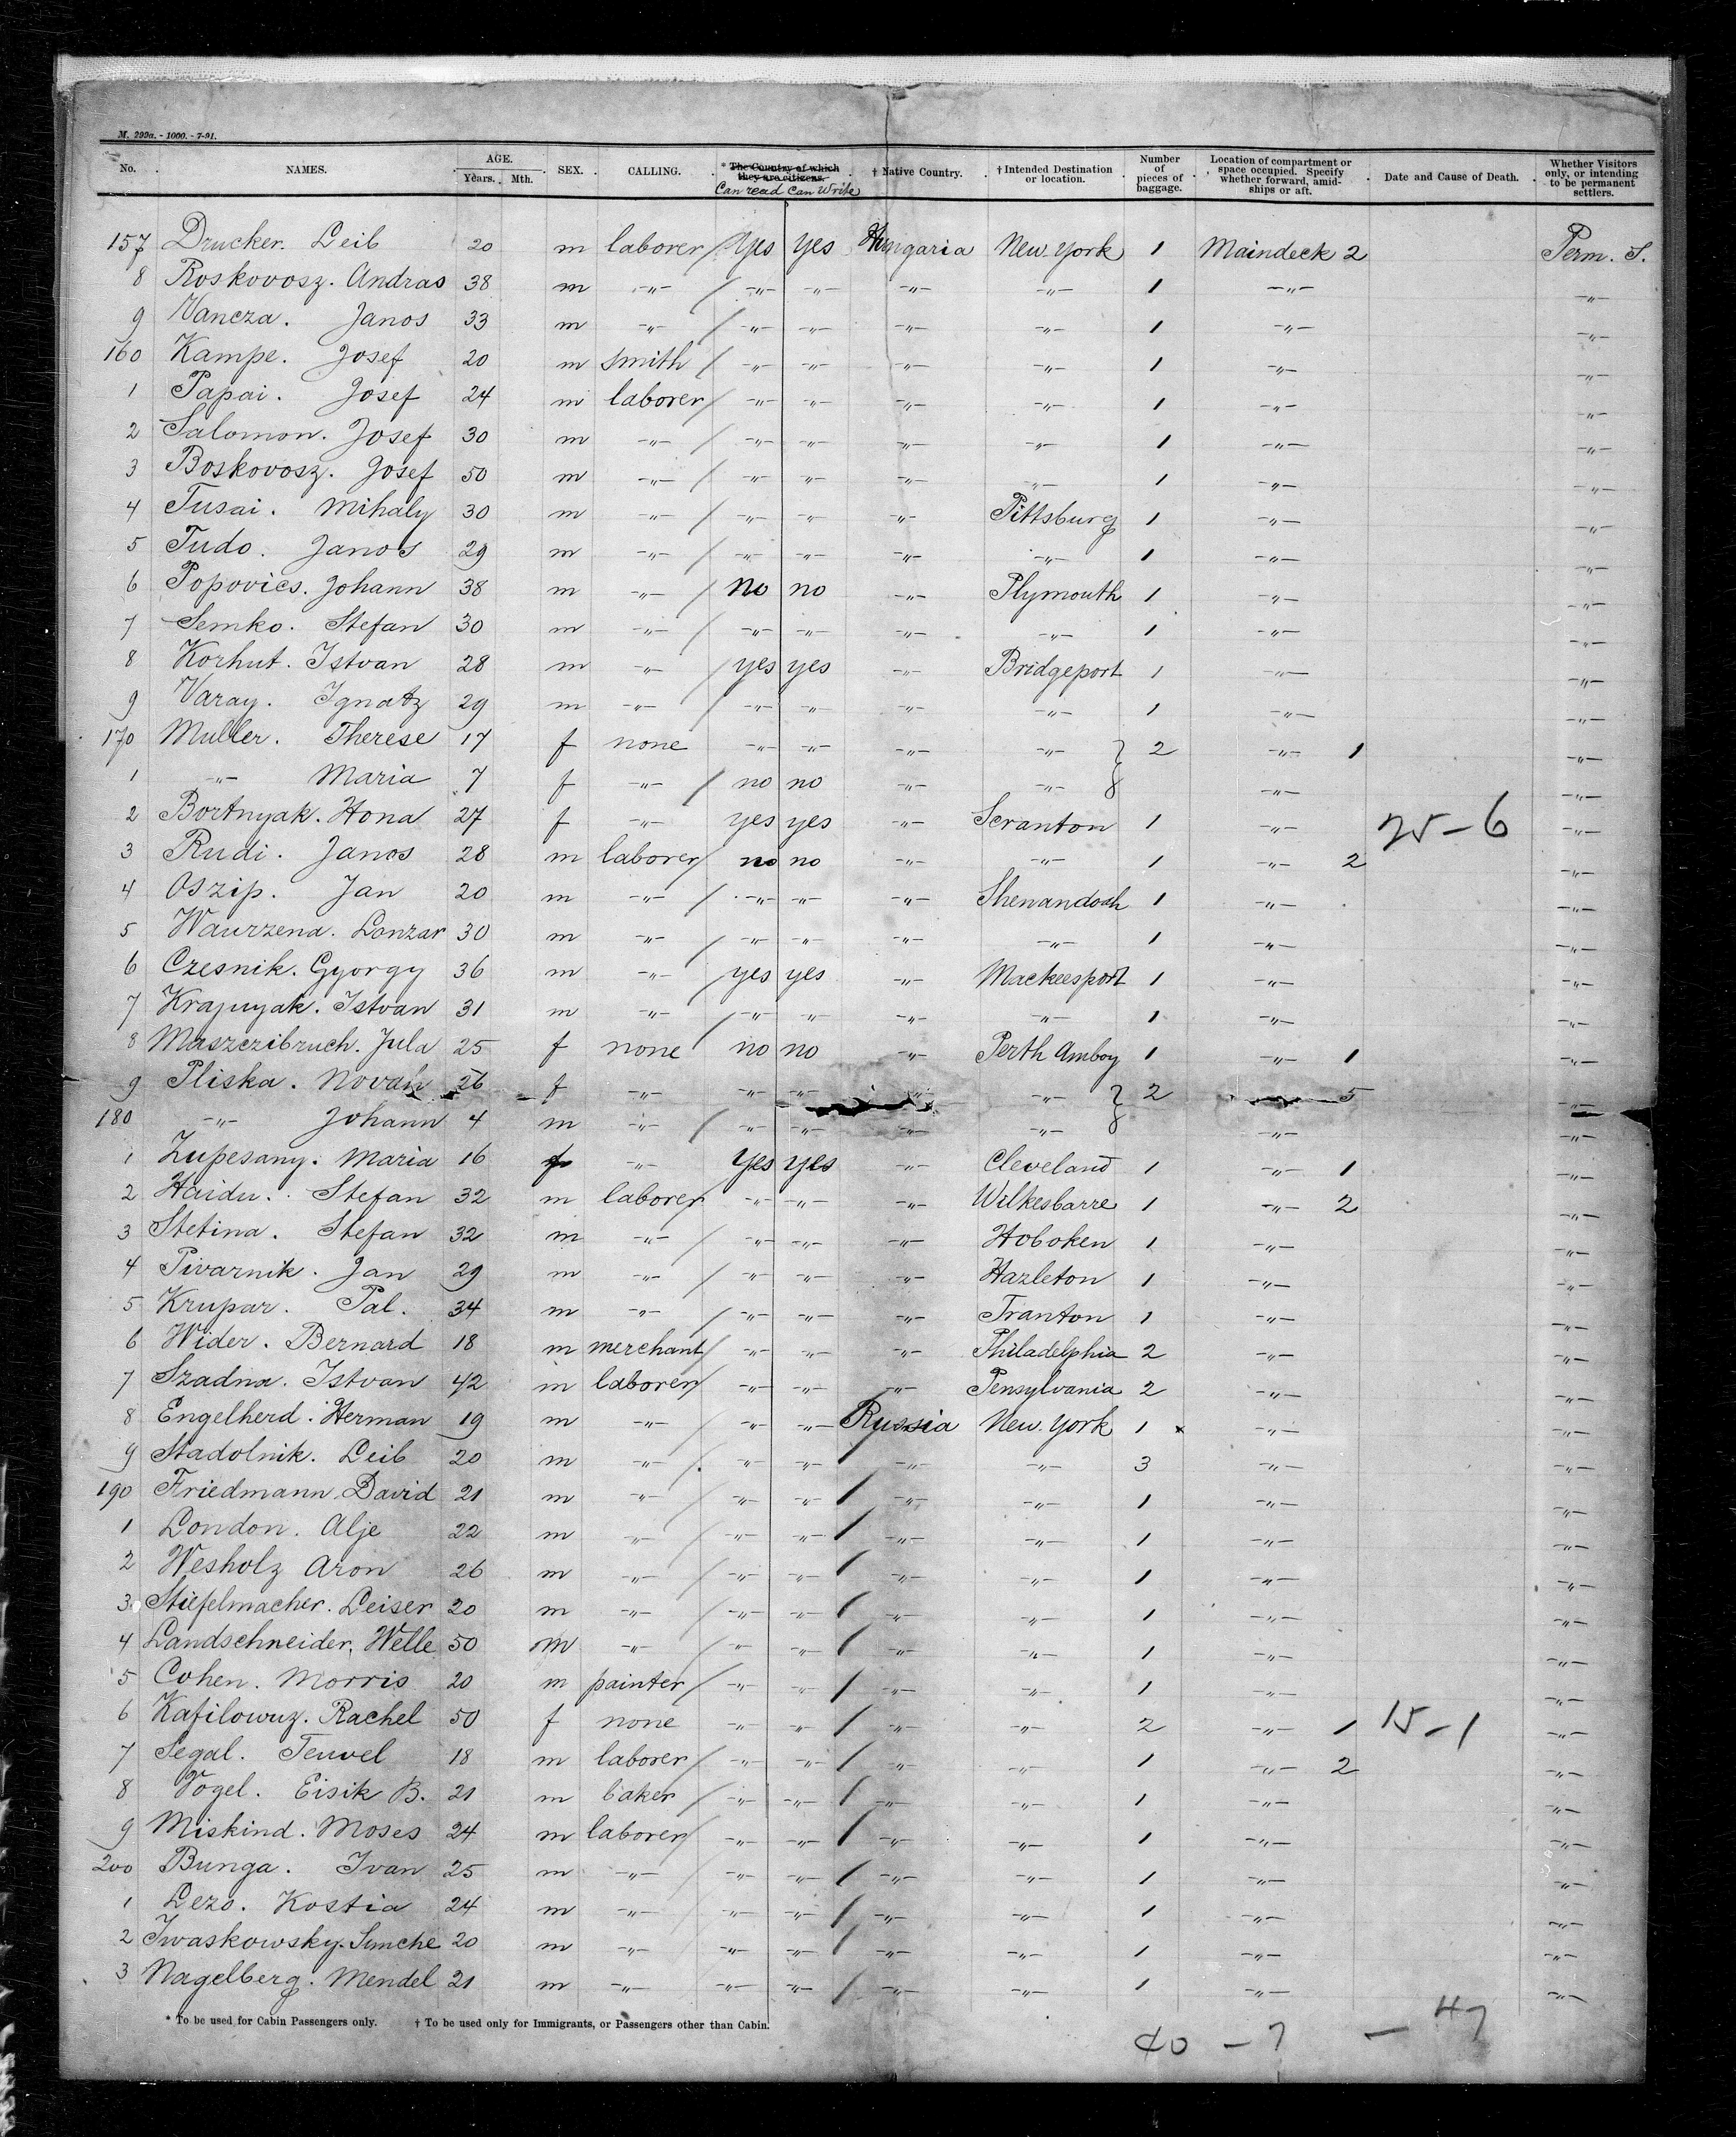 M. 299a. - 1000. - 7-91.
No. NAMES. AGE. Years. Mth. SEX. CALLING. * The Country of which they are citizens. Can read Can Write † Native Country. † Intended Destination or location. Number of pieces of baggage. Location of compartment or space occupied. Specify whether forward, amid-ships or aft. Date and Cause of Death. Whether Visitors only, or intending to be permanent settlers.
157 Drucker. Leib 20 m laborer / Yes yes Hungaria New York 1 Maindeck 2 Perm. S.
8 Roskovosz. Andras 38 m -"- / -"- -"- -"- -"- 1 -"- -"-
9 Vancza. Janos 33 m -"- / -"- -"- -"- -"- 1 -"- -"-
160 Kampe. Josef 20 m smith / -"- -"- -"- -"- 1 -"- -"-
1 Papai. Josef 24 m laborer / -"- -"- -"- -"- 1 -"- -"-
2 Salomon. Josef 30 m -"- / -"- -"- -"- -"- 1 -"- -"-
3 Boskovosz. Josef 50 m -"- / -"- -"- -"- -"- 1 -"- -"-
4 Tusai. Mihaly 30 m -"- / -"- -"- -"- Pittsburg 1 -"- -"-
5 Tudo. Janos 29 m -"- / -"- -"- -"- -"- 1 -"- -"-
6 Popovics. Johann 38 m -"- / no no -"- Plymouth 1 -"- -"-
7 Semko. Stefan 30 m -"- / -"- -"- -"- -"- 1 -"- -"-
8 Korhut. Istvan 28 m -"- / yes yes -"- Bridgeport 1 -"- -"-
9 Varay. Ignatz 29 m -"- / -"- -"- -"- -"- 1 -"- -"-
170 Muller. Therese 17 f none -"- -"- -"- -"- } 2 -"- 1 -"-
1 -"- Maria 7 f -"- / no no -"- -"- -"- -"-
2 Bortnyak. Hona 27 f -"- yes yes -"- Scranton 1 -"- 25-6 -"-
3 Rudi. Janos 28 m laborer / no no -"- -"- 1 -"- 2 -"-
4 Oszip. Jan 20 m -"- / -"- -"- -"- Shenandoah 1 -"- -"-
5 Waurzena. Lonzar 30 m -"- / -"- -"- -"- -"- 1 -"- -"-
6 Czesnik. Gyorgy 36 m -"- yes yes -"- Mackeesport 1 -"- -"-
7 Krajnyak. Istvan 31 m -"- / -"- -"- -"- -"- 1 -"- -"-
8 Maszczibruch. Jula 25 f none no no -"- Perth Amboy 1 -"- 1 -"-
9 Pliska. Novak 26 f -"- -"- -"- -"- -"- } 2 5 -"-
180 -"- Johann 4 m -"- / -"- -"- -"- -"- -"- -"-
1 Zupesany. Maria 16 f -"- Yes Yes -"- Cleveland 1 -"- 1 -"-
2 Haidu. Stefan 32 m laborer -"- -"- -"- Wilkesbarre 1 -"- 2 -"-
3 Stetina. Stefan 32 m -"- / -"- -"- -"- Hoboken 1 -"- -"-
4 Pivarnik. Jan 29 m -"- / -"- -"- -"- Hazleton 1 -"- -"-
5 Krupar. Pal. 34 m -"- / -"- -"- -"- Tranton 1 -"- -"-
6 Wider. Bernard 18 m merchant / -"- -"- -"- Philadelphia 2 -"- -"-
7 Szadna. Istvan 42 m laborer / -"- -"- -"- Pensylvania 2 -"- -"-
8 Engelherd. Herman 19 m -"- / -"- -"- Russia New York 1 x -"- -"-
9 Stadolnik. Leib 20 m -"- / -"- -"- / -"- -"- 3 -"- -"-
190 Friedmann David 21 m -"- / -"- -"- / -"- -"- 1 -"- -"-
1 London. Alje 22 m -"- / -"- -"- / -"- -"- 1 -"- -"-
2 Wesholz Aron 26 m -"- / -"- -"- / -"- -"- 1 -"- -"-
3 Stiefelmacher. Leiser 20 m -"- / -"- -"- / -"- -"- 1 -"- -"-
4 Landschneider, Welle 50 m -"- / -"- -"- / -"- -"- 1 -"- -"-
5 Cohen. Morris 20 m painter / -"- -"- / -"- -"- 1 -"- -"-
6 Rachel 50 f none -"- -"- / -"- -"- 2 -"- 1 15-1 -"-
7 Segal. Teuvel 18 m laborer / -"- -"- / -"- -"- 1 -"- 2 -"-
8 Vogel. Eisik B. 21 m baker / -"- -"- / -"- -"- 1 -"- -"-
9 Miskind. Moses 24 m laborer / -"- -"- / -"- -"- 1 -"- -"-
200 Bunga. Ivan 25 m -"- / -"- -"- / -"- -"- 1 -"- -"-
1 Lezo. Kostia 24 m -"- / -"- -"- / -"- -"- 1 -"- -"-
2 Iwaskowsky. Simche 20 m -"- -"- -"- / -"- -"- 1 -"- -"-
3 Nagelberg. Mendel 21 m -"- -"- -"- / -"- -"- 1 -"- -"-
* To be used for Cabin Passengers only. † To be used only for Immigrants, or Passengers other than Cabin.
40 - 7 - 47